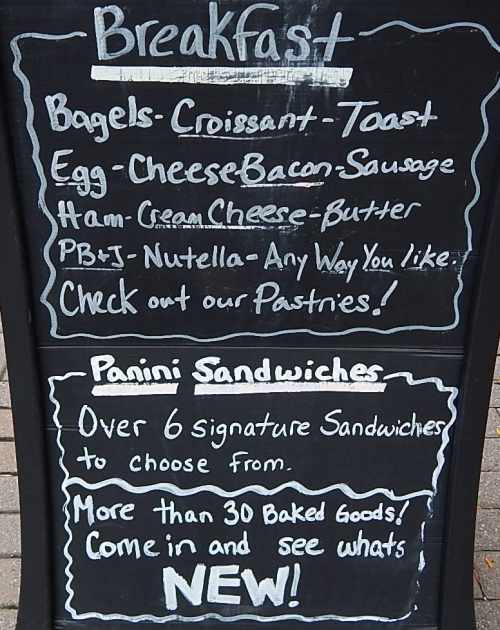 Breakfast
Bagels-Croissant-Toast
Egg-Cheese-Bacon-Sausage
Ham-Cream Cheese-Butter
PB+J-Nutella-Any Way You like.
Check out our Pastries!
Panini Sandwiches
Over 6 signature Sandwiches
to choose from.
More than 30 Baked Goods!
Come in and see whats
NEW!